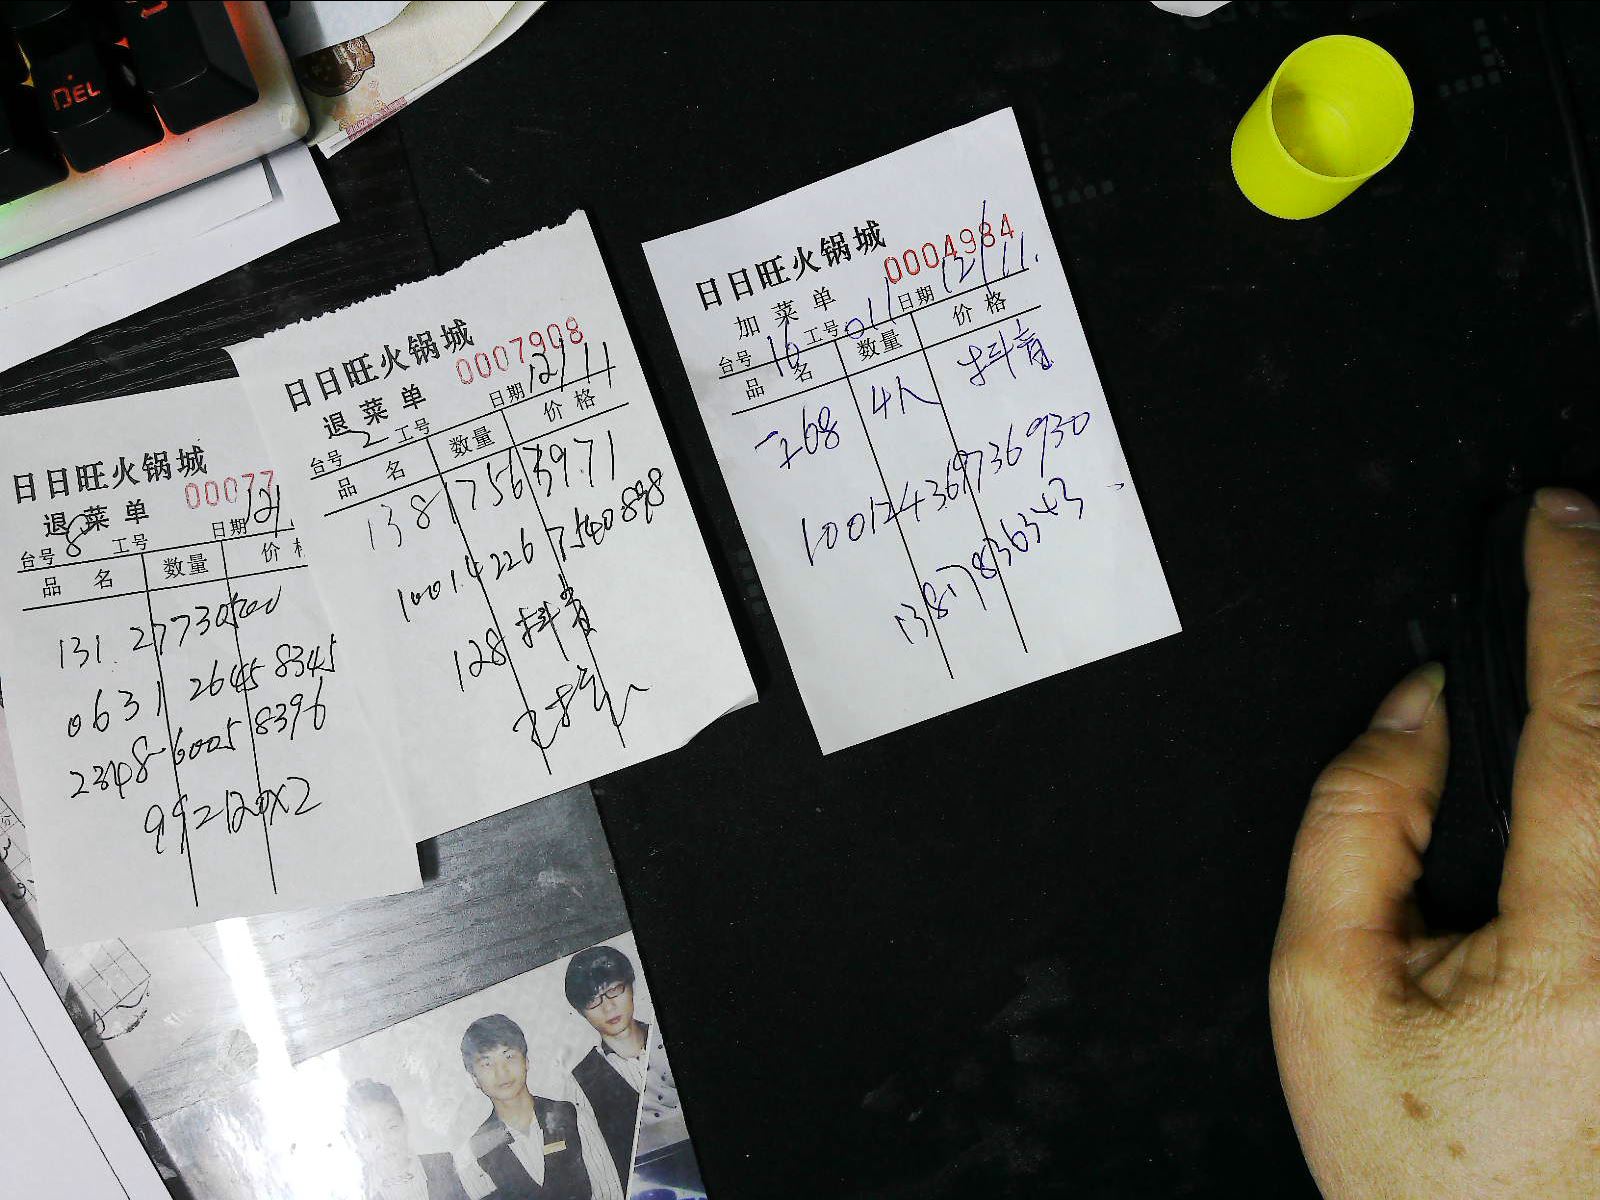 DEL
日日旺火锅城
00077
退菜单
台号 8 工号 日期 12/
品 名 数量 价
131 2773
0631 2645 8345
2348 6005 8396
99=120×2
日日旺火锅城
0007908
退菜单
台号 2 工号 日期 12/11
品 名 数量 价 格
138175639.71
10014226 7540898
128 抖音
日日旺火锅城
0004984
加菜单
台号 16 工号 011 日期 12/11.
品 名 数量 价 格
268 4人 抖音
100124369736930
13817836343